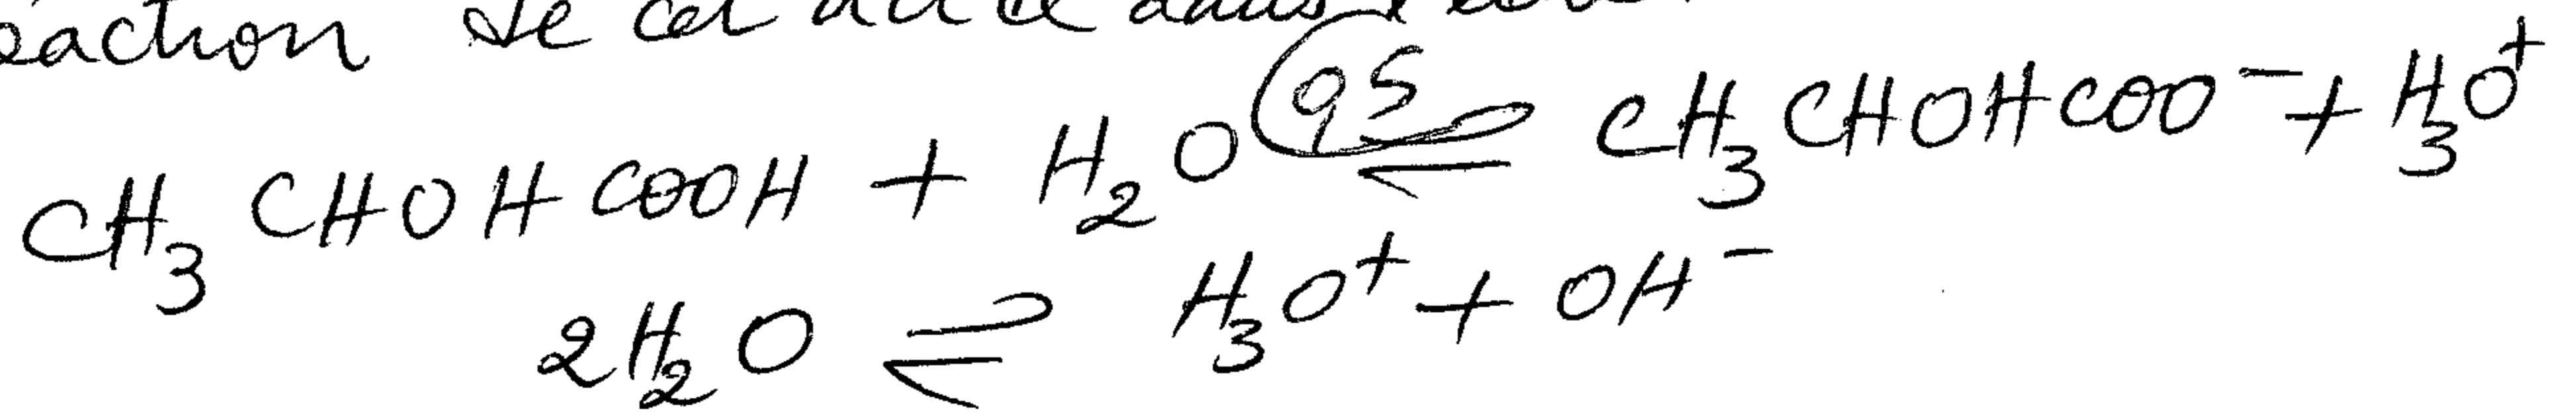 réaction de cet acide dans l'eau.
CH₃CHOHCOOH + H₂O (95 ⇌ CH₃CHOHCOO⁻ + H₃O⁺
2H₂O ⇌ H₃O⁺ + OH⁻